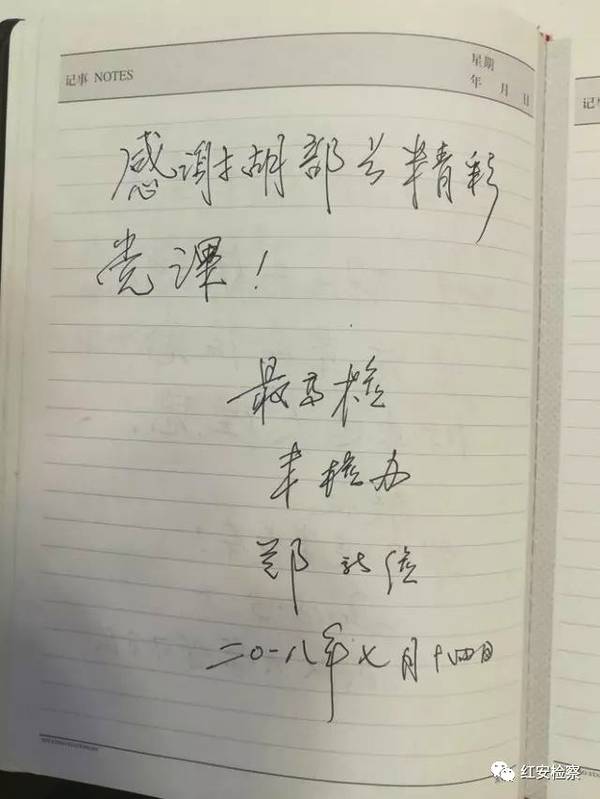 记事 NOTES
星期
年 月 日
感谢胡部长精彩
党课！
最高检
未检办
郑新俭
二〇一八年七月十四日
记事
红安检察